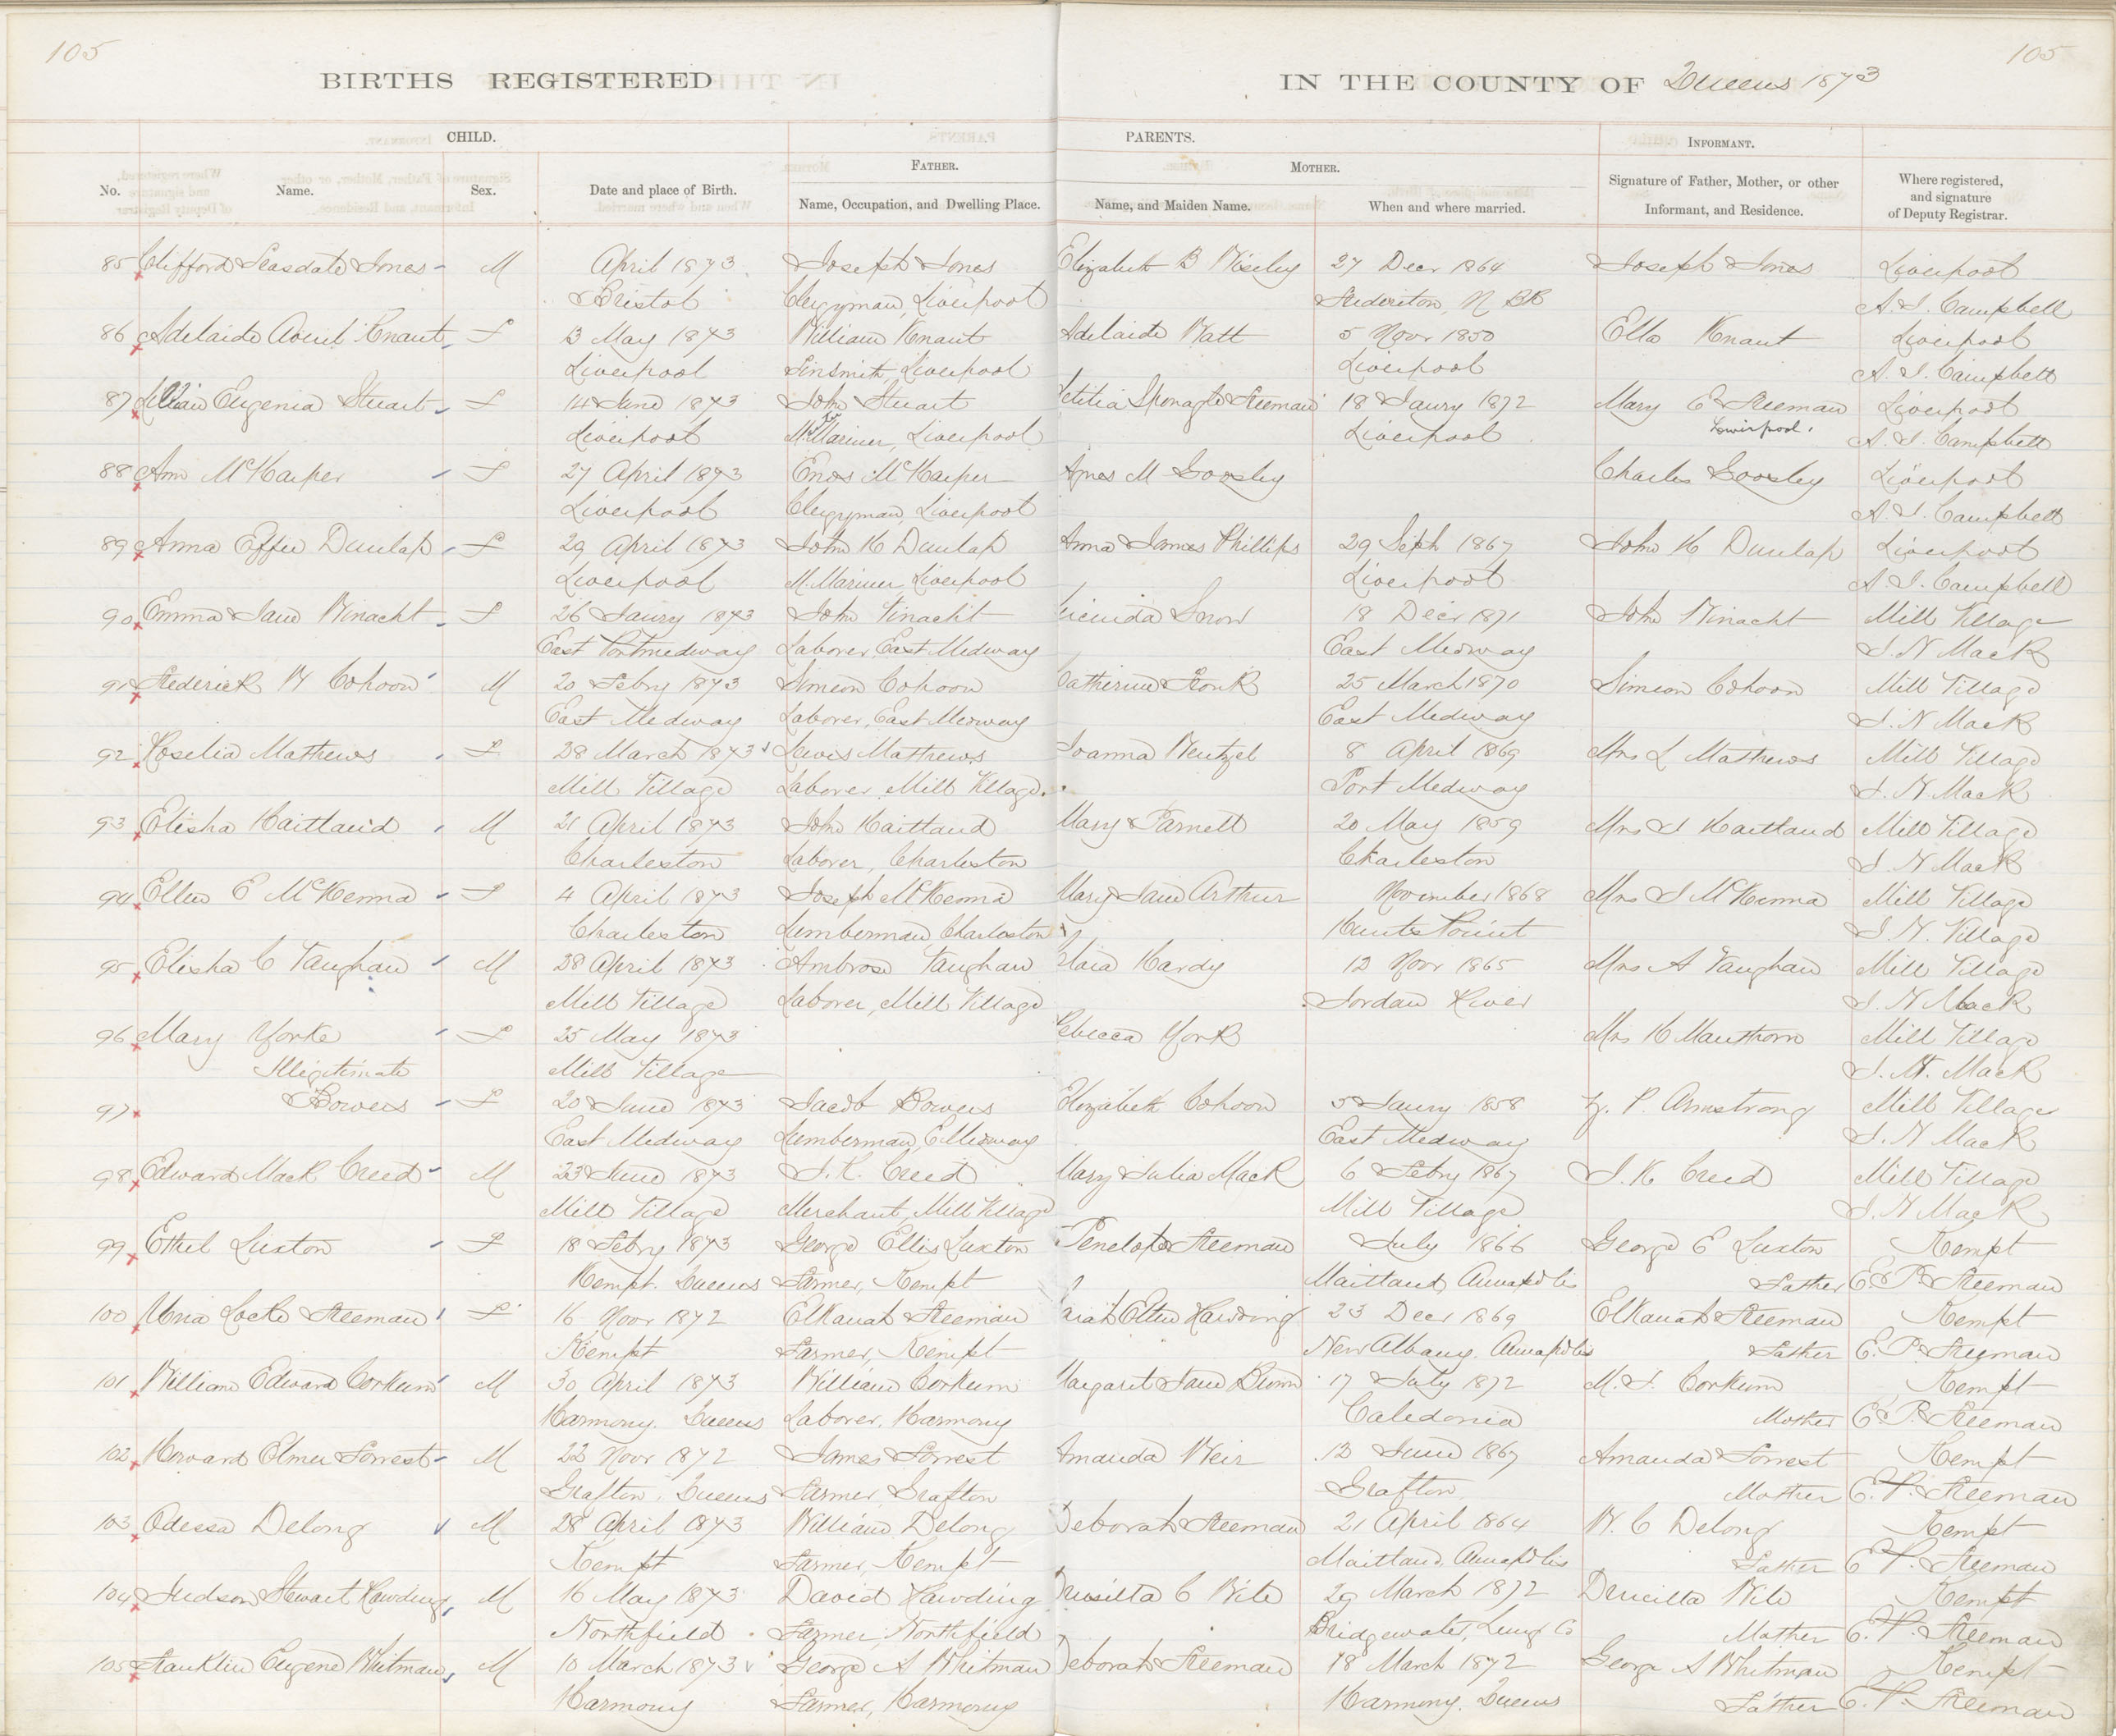 105
105
BIRTHS REGISTERED
IN THE COUNTY OF Queens 1873
CHILD.
PARENTS.
INFORMANT.
FATHER.
MOTHER.
No.
Name.
Sex.
Date and place of Birth.
Name, Occupation, and Dwelling Place.
Name, and Maiden Name.
When and where married.
Signature of Father, Mother, or other
Informant, and Residence.
Where registered,
and signature
of Deputy Registrar.
85 Clifford Teasdale Jones M April 1873 Joseph Jones Elizabeth B 27 Decr 1864 Joseph Jones Liverpool
Bristol Clergyman, Liverpool Frederiton, N B A. J. Campbell
86 Adelaide Knaut F 13 May 1873 William Knaut Adelaide Watt 5 Novr 1850 Ella Knaut Liverpool
Liverpool Tinsmith, Liverpool Liverpool A. J. Campbell
87 Lillian Eugenia Stuart F 14 June 1873 John Stuart Letitia Sponagle Freeman 18 Jany 1872 Mary E Freeman Liverpool
Liverpool Mr Mariner, Liverpool Liverpool Liverpool. A. J. Campbell
88 Ann McHarper F 27 April 1873 Enos McHarper Agnes M Goosley Charles Goosley Liverpool
Liverpool Clergyman, Liverpool A. J. Campbell
89 Anna Effie Dunlap F 29 April 1873 John H Dunlap Anna James Phillips 29 Sept 1867 John H Dunlap Liverpool
Liverpool M. Mariner, Liverpool Liverpool A. J. Campbell
90 Emma Jane Winacht F 26 Jany 1873 John Vinacht Lucinda Snow 18 Decr 1871 John Winacht Mill Village
East Portmedway Laborer, East Medway East Medway S. N Mack
91 Frederick W Cohoon M 20 Febry 1873 Simeon Cohoon Catherine Fronk 25 March 1870 Simeon Cohoon Mill Village
East Medway Laborer, East Medway East Medway S. N Mack
92 Roselia Mathews F 28 March 1873 Lewis Matthews Joanna Wentzel 8 April 1869 Mrs L Mathews Mill Village
Mill Village Laborer, Mill Village. Port Medway S. N. Mack
93 Elisha Haitland M 21 April 1873 John Haitland Mary Parnell 20 May 1859 Mrs J Haitland Mill Village
Charleston Laborer, Charleston Charleston S. N Mack
94 Ellen E McKenna F 4 April 1873 Joseph McKenna Mary Jane Arthur November 1868 Mrs J McKenna Mill Village
Charleston Lumberman, Charleston Hunts Point S. N. Village
95 Elisha C Vaughan M 28 April 1873 Ambrose Vaughan Hardy 12 Novr 1865 Mrs A Vaughan Mill Village
Mill Village Laborer, Mill Village Jordan River S. N Mack
96 Mary Yorke F 25 May 1873 Rebecca York Mrs H Mawthorn Mill Village
Illigitimate Mill Village S. N. Mack
97 Bowers F 20 June 1873 Jacob Bowers Elizabeth Cohoon 5 Jany 1858 P. Armstrong Mill Village
East Medway Lumberman, E. Medway East Medway S. N Mack
98 Edward Mack Creed M 23 June 1873 J. H. Creed Mary Julia Mack 6 Febry 1867 J. H Creed Mill Village
Mill Village Merchant, Mill Village Mill Village S. N Mack
99 Ethel Luxton F 18 Febry 1873 George Ellis Luxton Penelope Freeman July 1866 George E Luxton Kempt
Kempt. Queens Farmer, Kempt Maitland, Annapolis Father E. P. Freeman
100 Una Locke Freeman F 16 Novr 1872 Elkanah Freeman Ellen Harding 23 Decr 1869 Elkanah Freeman Kempt
Kempt Farmer, Kempt New Albany. Annapolis Father E. P. Freeman
101 William Edward Corkum M 30 April 1873 William Corkum Margaret Jane Brown 17 July 1872 M. J. Corkum Kempt
Harmony. Queens Laborer. Harmony Caledonia Mother E. P. Freeman
102 Howard Elmer Forrest M 22 Novr 1872 James Forrest Amanda Weir 13 June 1867 Amanda Forrest Kempt
Grafton. Queens Farmer, Grafton Grafton Mother E. P. Freeman
103 Odessa Delong M 28 April 1873 William Delong Deborah Freeman 21 April 1864 W. C Delong Kempt
Kempt Farmer, Kempt Maitland, Annapolis Father E. P. Freeman
104 Judson Stewart Harding M 16 May 1873 David Harding Drusilla C Wile 29 March 1872 Drucilla Wile Kempt
Northfield Farmer, Northfield Bridgewater, Lung Co Mother E. P. Freeman
105 Franklin Eugene Whitman M 10 March 1873 George A Whitman Deborah Freeman 18 March 1872 George A Whitman Kempt
Harmony Farmer, Harmony Harmony. Queens Father E. P. Freeman